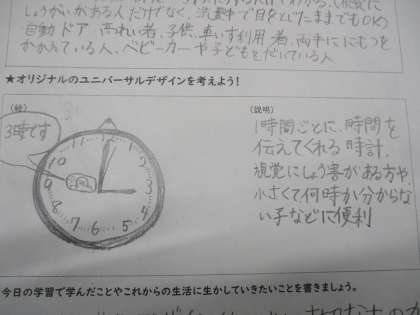 しょうがいがある人だけでなく、
自動ドア 高れい者、子供、車いす利用者、両手ににもつを
かかえている人、ベビーカーや子どもをだいている人
★オリジナルのユニバーサルデザインを考えよう！
（絵）
3時です
12
1
2
3
4
5
6
7
8
9
10
11
（説明）
1時間ごとに、時間を
伝えてくれる時計。
視覚にしょう害がある方や、
小さくて何時か分からな
い子などに便利
今日の学習で学んだことやこれからの生活に生かしていきたいことを書きましょう。